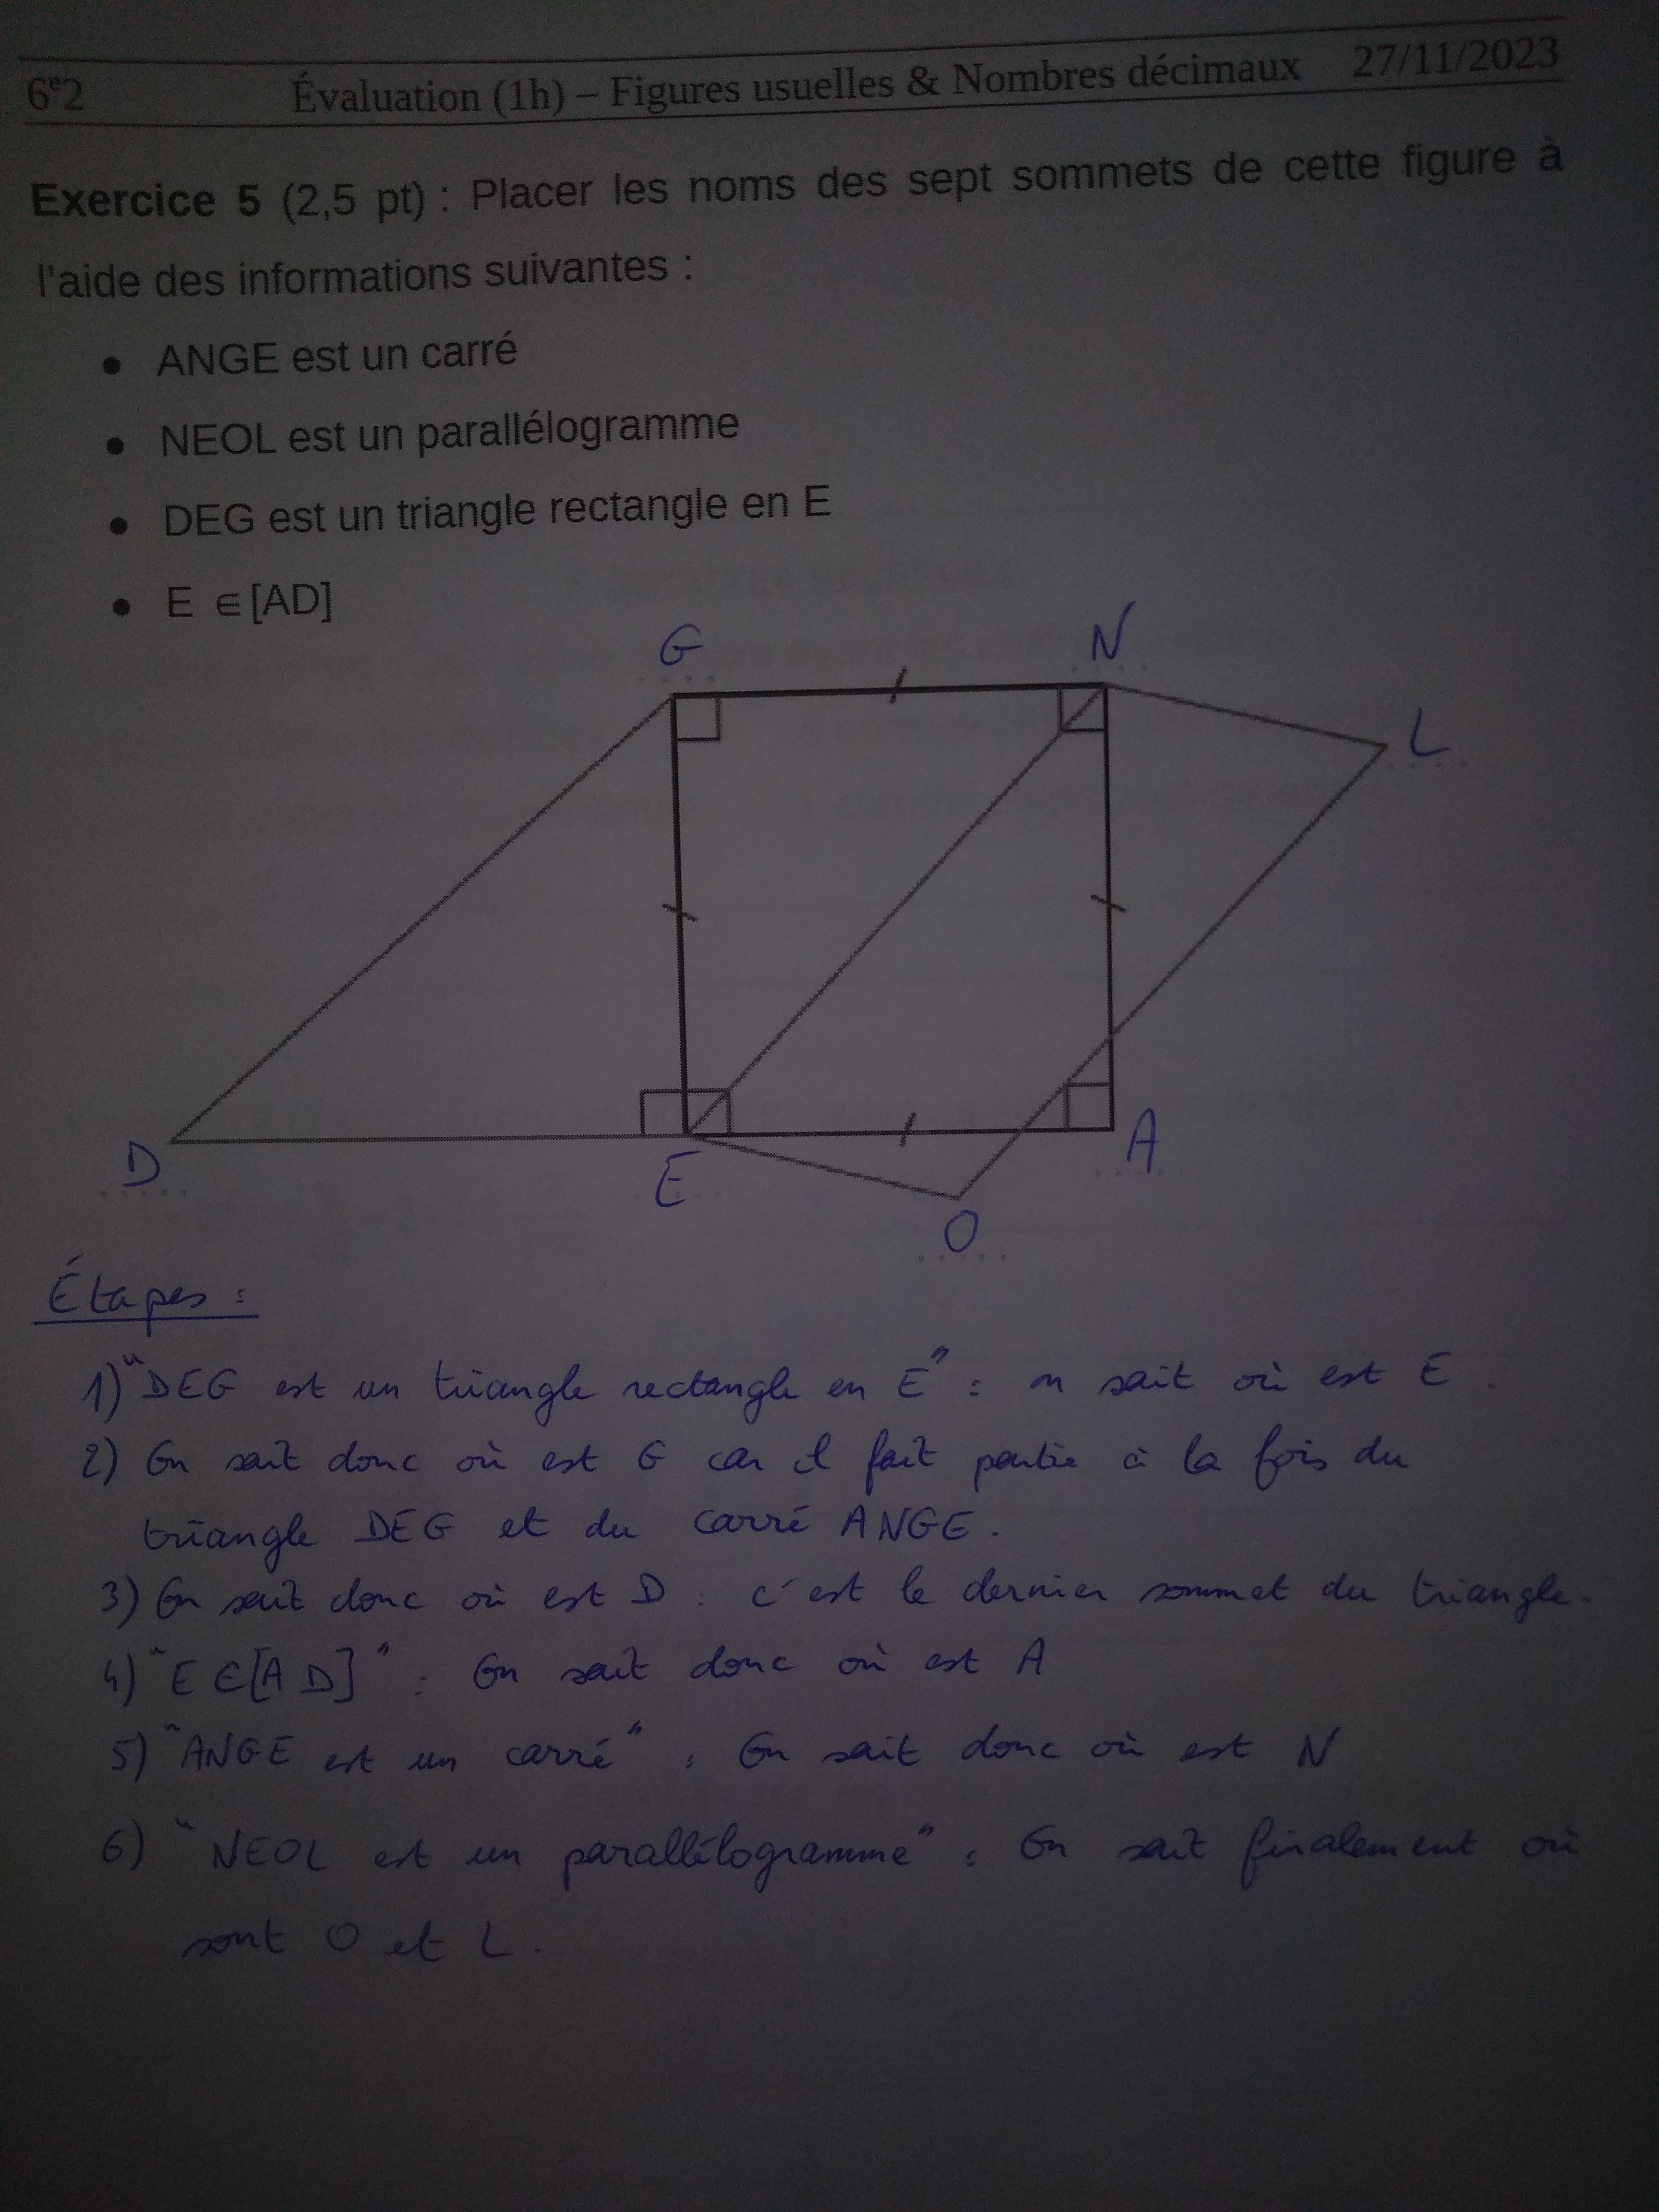 6e2 Évaluation (1h) – Figures usuelles & Nombres décimaux 27/11/2023
Exercice 5 (2,5 pt) : Placer les noms des sept sommets de cette figure à
l'aide des informations suivantes :
• ANGE est un carré
• NEOL est un parallélogramme
• DEG est un triangle rectangle en E
• E ∈ [AD]
G N
L
D E A
O
Étapes :
1) "DEG est un triangle rectangle en E" : on sait où est E.
2) On sait donc où est G car il fait partie à la fois du
triangle DEG et du carré ANGE.
3) On sait donc où est D : c'est le dernier sommet du triangle.
4) "E ∈ [AD]" : On sait donc où est A
5) "ANGE est un carré" : On sait donc où est N
6) "NEOL est un parallélogramme" : On sait finalement où
sont O et L.